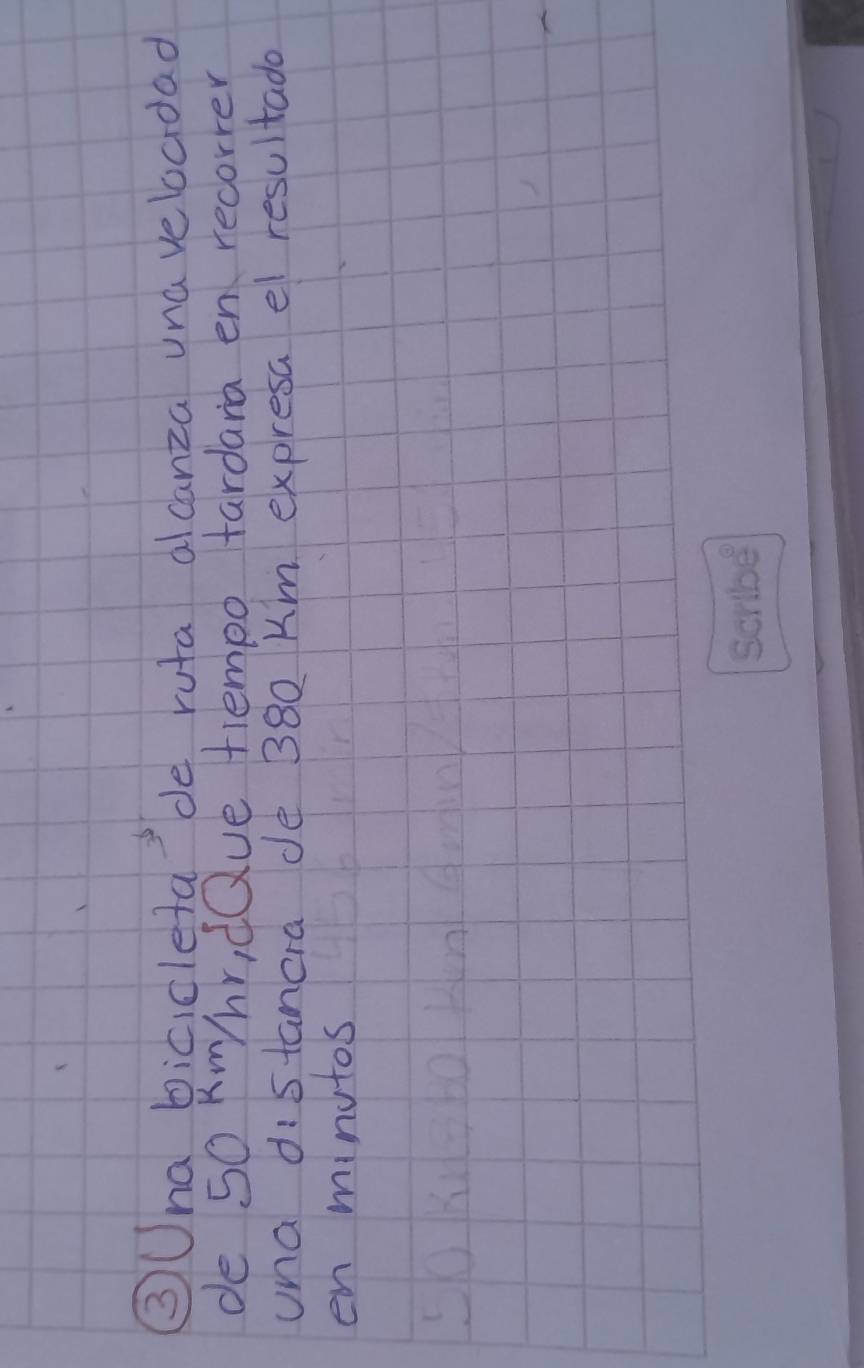 ③ Una bicicleta de ruta alcanza una velocidad
de 50 Km/hr, ¿Que tiempo tardaria en recorrer
una distancia de 380 Km expresa el resultado
en minutos 456 min
Scribe